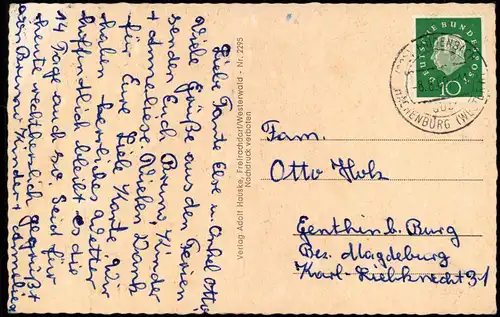 Liebe Tante Else u. Onkel Otto!
Viele Grüße aus den Ferien
senden Euch Bruno, Kinder
+ Anneliese. Vielen Dank
für Eure liebe Karte. Wir
haben herrliches Wetter
hoffentlich bleibt es die
14 Tage auch so. Seid für
heute recht herzlich gegrüßt
Bruno + Anneliese
Verlag Adolf Hauske, Freirachdorf/Westerwald - Nr. 2295
Nachdruck verboten
DEUTSCHE BUNDESPOST
10
HACHENBURG (WESTERW)
Fam.
Otto Holz
Genthin b. Burg
Bez. Magdeburg
Karl-Liebknecht 31